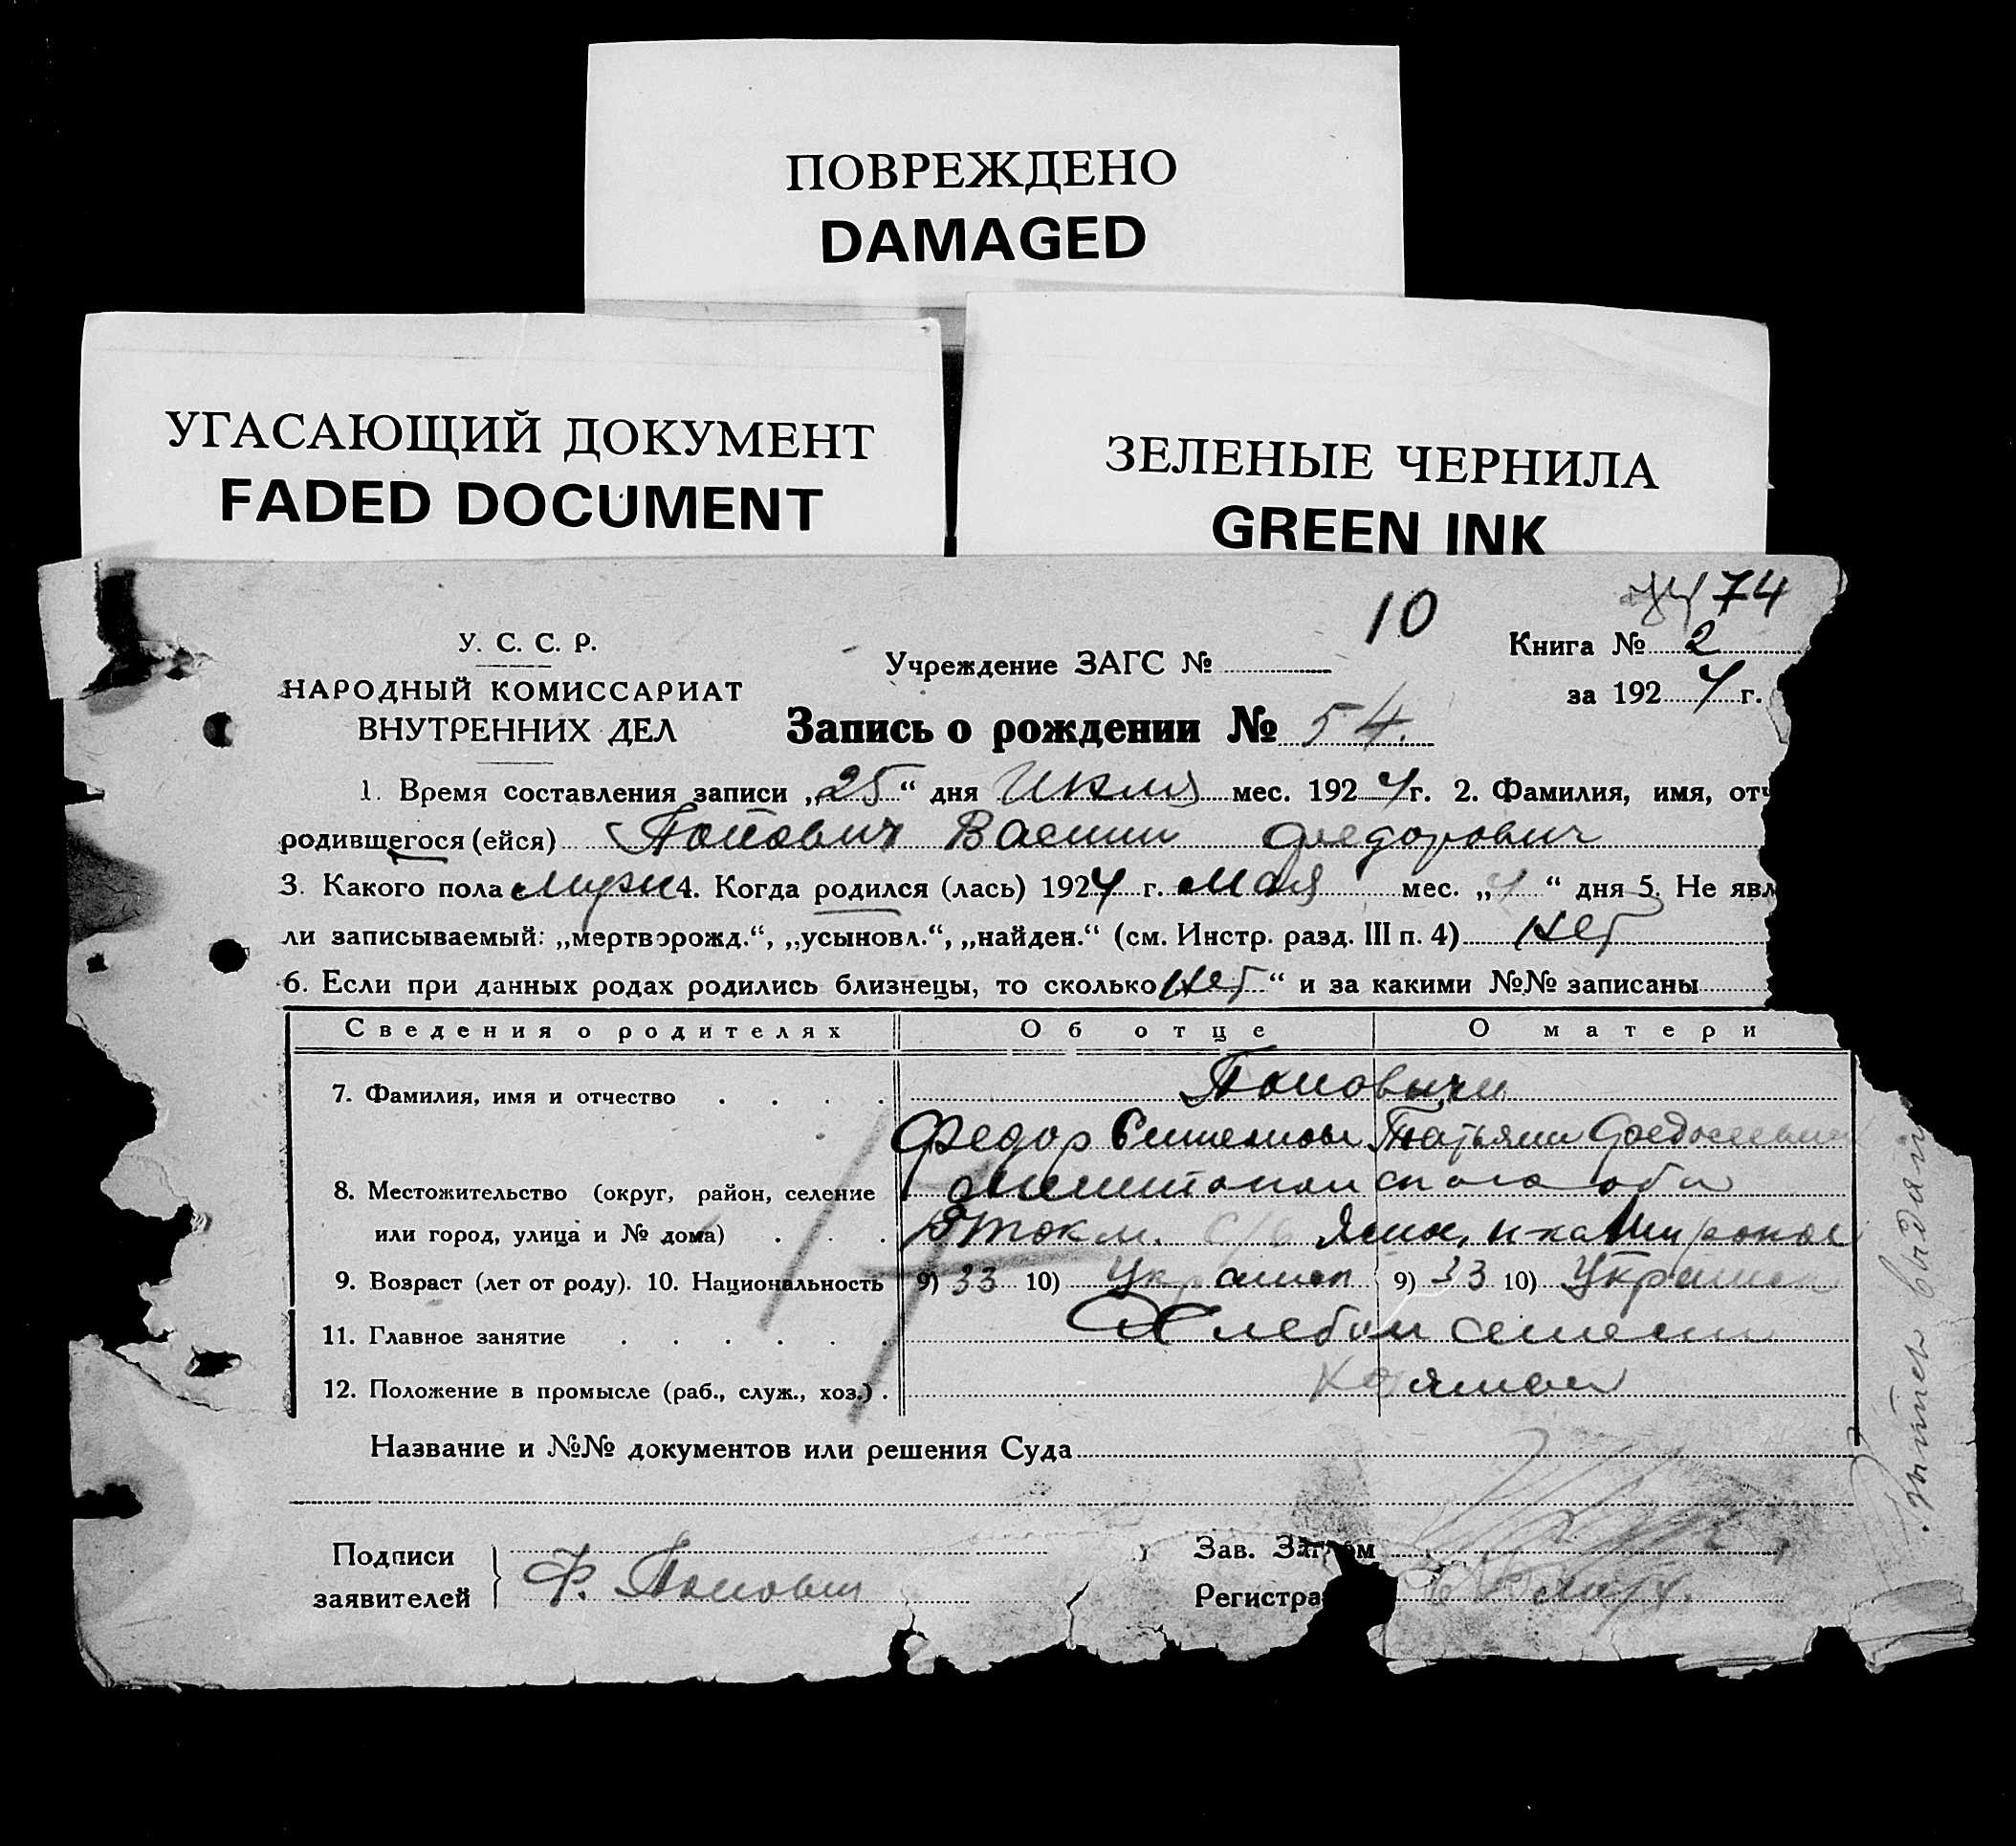 ПОВРЕЖДЕНО
DAMAGED
УГАСАЮЩИЙ ДОКУМЕНТ
FADED DOCUMENT
ЗЕЛЕНЫЕ ЧЕРНИЛА
GREEN INK
74
10
У. С. С. Р.
НАРОДНЫЙ КОМИССАРИАТ
ВНУТРЕННИХ ДЕЛ
Учреждение ЗАГС №
Книга № 2
за 1924 г.
Запись о рождении № 54.
1. Время составления записи „25“ дня Июля мес. 1924 г. 2. Фамилия, имя, отч
родившегося (ейся) Попович Федорович
3. Какого пола 4. Когда родился (лась) 1924 г. Мая мес. „4“ дня 5. Не явл
ли записываемый: „мертворожд.“, „усыновл.“, „найден.“ (см. Инстр. разд. III п. 4) Нет
6. Если при данных родах родились близнецы, то сколько Нет“ и за какими №№ записаны
Сведения о родителях Об отце О матери
7. Фамилия, имя и отчество Поповичи
Федор Татьяна
8. Местожительство (округ, район, селение
или город, улица и № дома)
9. Возраст (лет от роду). 10. Национальность 9) 33 10) 9) 33 10)
11. Главное занятие
12. Положение в промысле (раб., служ., хоз.)
Название и №№ документов или решения Суда
Подписи
заявителей Ф. Попович
Зав. Загсом
Регистра
выдан